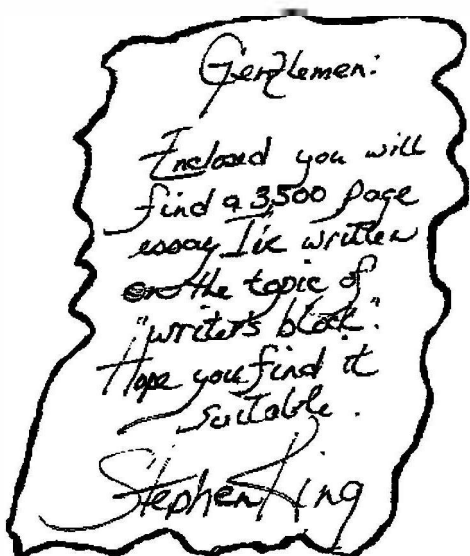 Gentlemen:
Enclosed you will
find a 3,500 page
essay I've written
on the topic of
"writer's block".
Hope you find it
suitable.
Stephen King